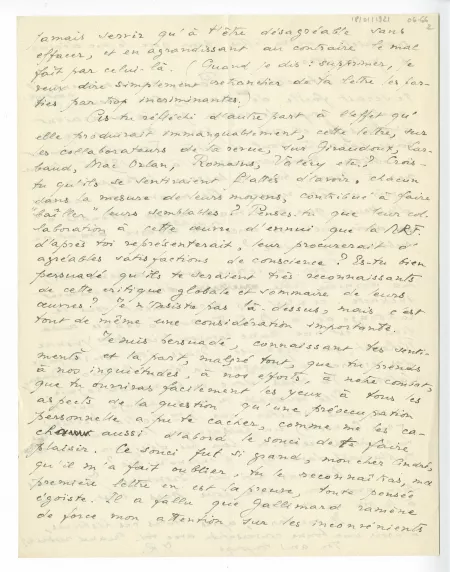 18/01/1921
06-66
2
jamais servir qu'à t'être désagréable sans
effacer, et en agrandissant au contraire le mal
fait par celui-là. (Quand je dis : supprimer, je
veux dire simplement retrancher de ta lettre les par-
ties par trop incriminantes.)
As-tu réfléchi d'autre part à l'effet qu'
elle produirait immanquablement, cette lettre, sur
les collaborateurs de la revue, sur Giraudoux, Lar-
baud, Mac Orlan, Romains, Valéry etc ? Crois-
tu qu'ils se sentiraient flattés d'avoir, chacun
dans la mesure de leurs moyens, contribué à faire
"bâiller" leurs semblables ? Penses-tu que leur col-
laboration à cette œuvre d'ennui que la NRF.
d'après toi représenterait, leur procurerait d'
agréables satisfactions de conscience ? Es-tu bien
persuadé qu'ils te seraient très reconnaissants
de cette critique globale et sommaire de leurs
œuvres ? Je n'insiste pas là-dessus, mais c'est
tout de même une considération importante.
Je suis persuadé, connaissant tes senti-
ments et la part, malgré tout, que tu prends
à nos inquiétudes, à nos efforts, à notre combat,
que tu ouvriras facilement les yeux à tous les
aspects de la question qu'une préoccupation
personnelle a pu te cacher, comme me les ca-
cha aussi d'abord le souci de te faire
plaisir. Ce souci fut si grand, mon cher André,
qu'il m'a fait oublier, tu le reconnaîtras, ma
première lettre en est la preuve, toute pensée
égoïste. Il a fallu que Gallimard ramène
de force mon attention sur les inconvénients